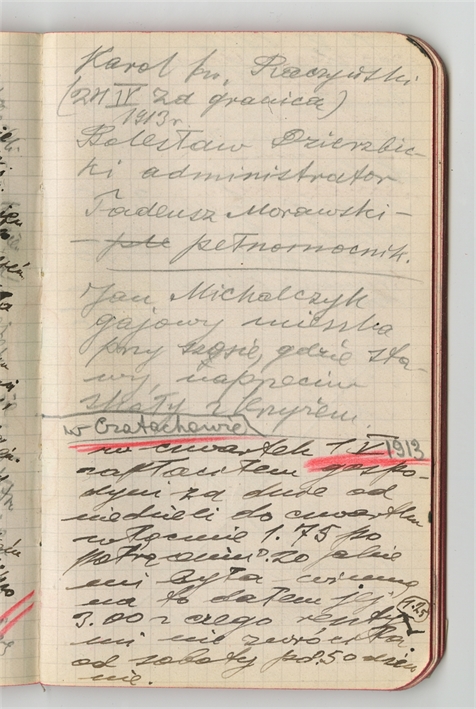 Karol hr. Raczyński
(24 IV za granicą)
1913 r.
Bolesław Dzierzbic-
ki administrator
Tadeusz Morawski -
- peł pełnomocnik.
Jan Michalczyk
gajowy mieszka
przy szosie, gdzie sta-
wy, naprzeciw
skały z krzyżem.
w Czatachowie
w czwartek 1 V 1913
zapłaciłem gospo-
dyni za dnie od
niedzieli do czwartku
włącznie 1.75 po
potrąceniu 20 jakie
mi była winna
na to dałem jej
3.00 z czego reszty 1.25
mi nie zwróciła
od soboty po 50 dzien
nie.